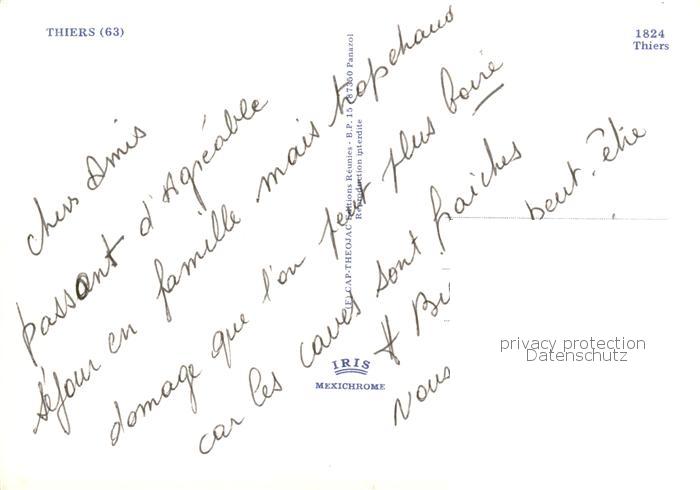 THIERS (63)
1824
Thiers
(E) CAP-THEOJAC Editions Réunies - B.P. 15 - 87350 Panazol
Reproduction interdite
IRIS
MEXICHROME
chers Amis
passant d'Agréable
séjour en famille mais trop chaud
domage que l'on peut plus boire
car les caves sont fraiches
peut-être
Bi
vous
privacy protection
Datenschutz